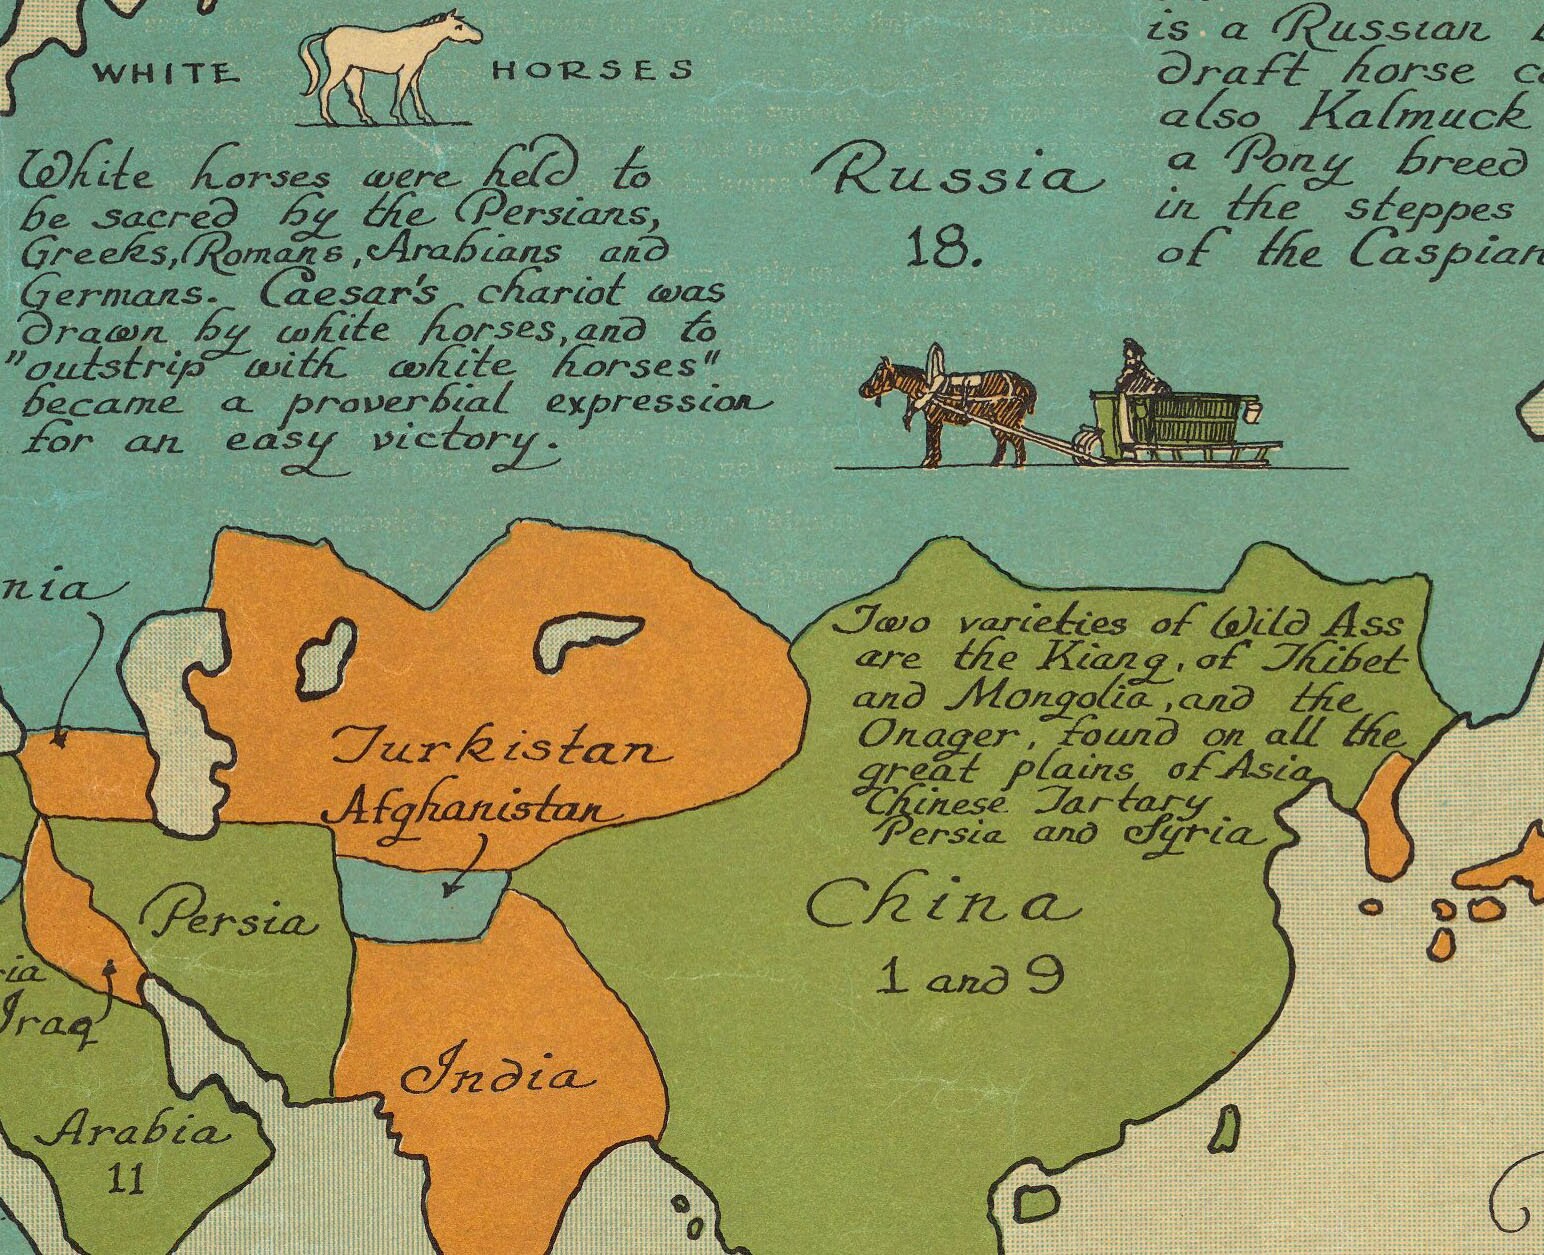 WHITE HORSES
White horses were held to
be sacred by the Persians,
Greeks, Romans, Arabians and
Germans. Caesar's chariot was
drawn by white horses, and to
"outstrip with white horses"
became a proverbial expression
for an easy victory.
Russia
18.
is a Russian
draft horse
also Kalmuck
a Pony breed
in the steppes
of the Caspian
nia
Two varieties of Wild Ass
are the Kiang, of Thibet
and Mongolia, and the
Onager, found on all the
great plains of Asia
Chinese Tartary
Persia and Syria
Turkistan
Afghanistan
China
1 and 9
Persia
ria
Iraq
India
Arabia
11